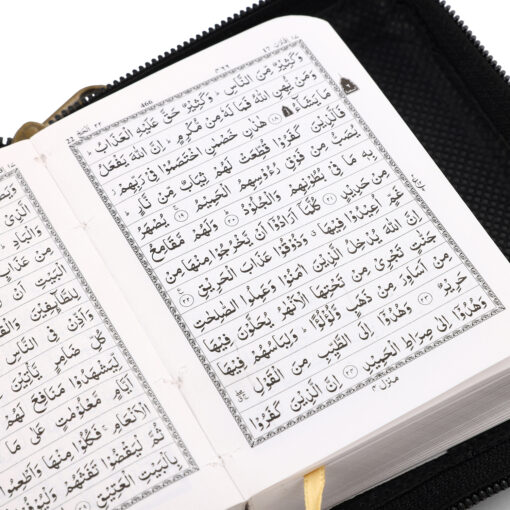 اقترب ١٧
466
الحج ٢٢
22
وَكَثِيْرٌ مِّنَ النَّاسِ ؕ وَكَثِيْرٌ حَقَّ عَلَيْهِ الْعَذَابُ ؕ
وَمَنْ يُّهِنِ اللّٰهُ فَمَا لَهٗ مِنْ مُّكْرِمٍ ؕ اِنَّ اللّٰهَ يَفْعَلُ
مَا يَشَآءُ ۩ ﴿١٨﴾ هٰذٰنِ خَصْمٰنِ اخْتَصَمُوْا فِيْ رَبِّهِمْ ؗ
فَالَّذِيْنَ كَفَرُوْا قُطِّعَتْ لَهُمْ ثِيَابٌ مِّنْ نَّارٍ ؕ
يُصَبُّ مِنْ فَوْقِ رُءُوْسِهِمُ الْحَمِيْمُ ﴿١٩﴾ يُصْهَرُ
بِهٖ مَا فِيْ بُطُوْنِهِمْ وَالْجُلُوْدُ ﴿٢٠﴾ وَلَهُمْ مَّقَامِعُ
مِنْ حَدِيْدٍ ﴿٢١﴾ كُلَّمَآ اَرَادُوْٓا اَنْ يَّخْرُجُوْا مِنْهَا مِنْ
غَمٍّ اُعِيْدُوْا فِيْهَا ۗ وَذُوْقُوْا عَذَابَ الْحَرِيْقِ ﴿٢٢﴾
اِنَّ اللّٰهَ يُدْخِلُ الَّذِيْنَ اٰمَنُوْا وَعَمِلُوا الصّٰلِحٰتِ
جَنّٰتٍ تَجْرِيْ مِنْ تَحْتِهَا الْاَنْهٰرُ يُحَلَّوْنَ فِيْهَا
مِنْ اَسَاوِرَ مِنْ ذَهَبٍ وَّلُؤْلُؤًا ؕ وَلِبَاسُهُمْ فِيْهَا
حَرِيْرٌ ﴿٢٣﴾ وَهُدُوْٓا اِلَى الطَّيِّبِ مِنَ الْقَوْلِ
وَهُدُوْٓا اِلٰى صِرَاطِ الْحَمِيْدِ ﴿٢٤﴾ اِنَّ الَّذِيْنَ كَفَرُوْا
منزل ٤
الَّذِيْ
وَالْبَادِ
مِنْ عَذَابٍ
الْبَيْتِ اَنْ
لِلطَّآئِفِيْنَ وَالْقَ
وَاَذِّنْ فِي النَّاسِ
كُلِّ ضَامِرٍ يَّاْتِيْنَ
لِّيَشْهَدُوْا مَنَافِعَ لَهُمْ
اَيَّامٍ مَّعْلُوْمٰتٍ عَلٰى مَا
الْاَنْعَامِ ۚ فَكُلُوْا مِنْهَا وَاَطْعِمُوا
ثُمَّ لْيَقْضُوْا تَفَثَهُمْ وَلْيُوْفُوْا
بِالْبَيْتِ الْعَتِيْقِ